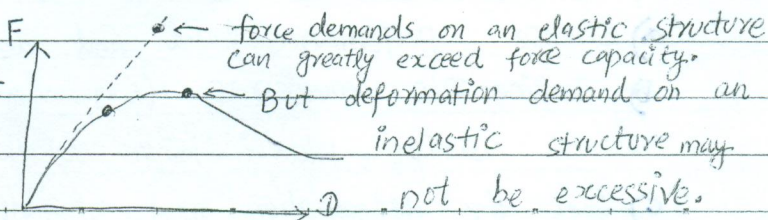 F
force demands on an elastic structure
can greatly exceed force capacity.
But deformation demand on an
inelastic structure may
not be excessive.
D